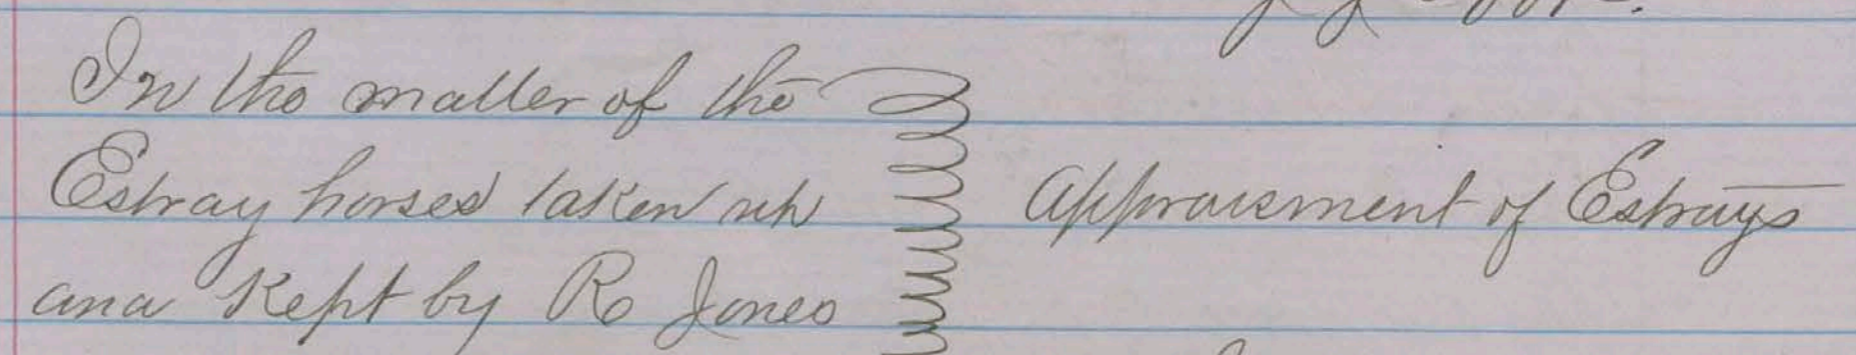 In the matter of the
Estray horses taken up
and Kept by R Jones
Appraisment of Estrays